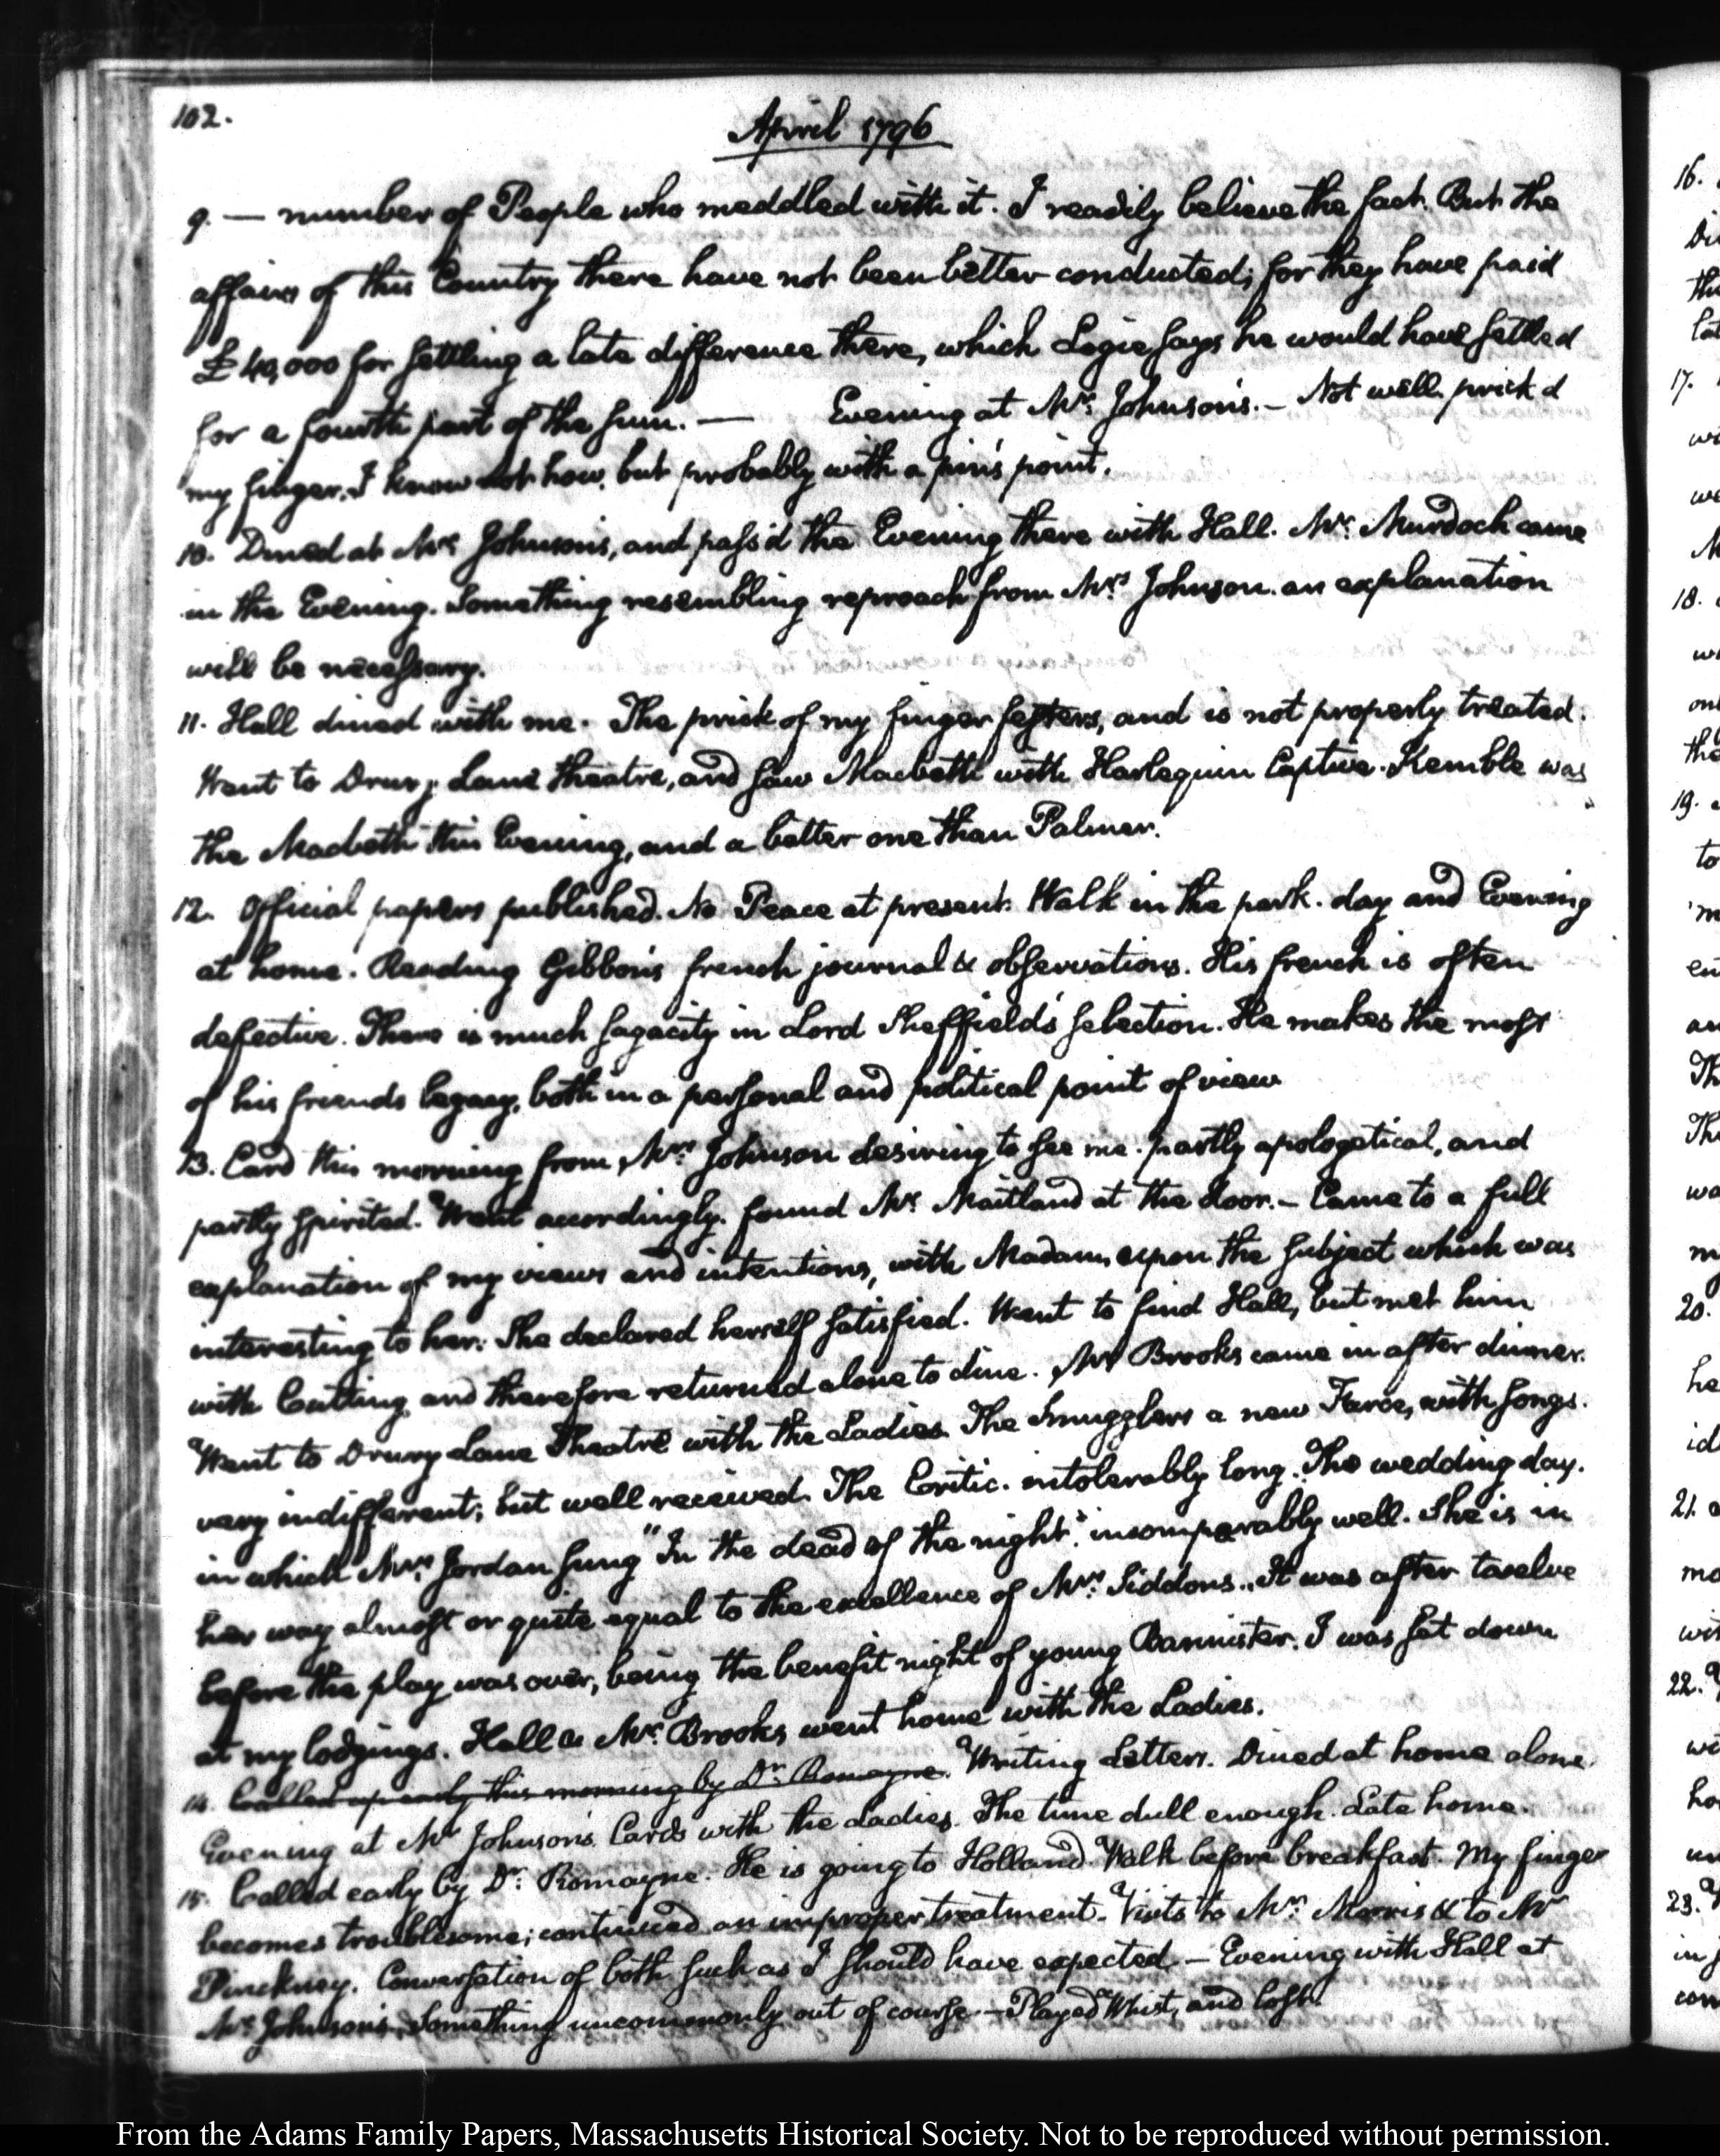 102.
April 1796
9. — number of People who meddled with it. I readily believe the fact. But the
affairs of this Country there have not been better conducted; for they have paid
£40,000 for settling a late difference there, which Logie says he would have settled
for a fourth part of the sum. — Evening at Mr: Johnson's. — Not well. prick'd
my finger. I know not how, but probably with a pin's point.
10. Dined at Mr: Johnson's, and pass'd the Evening there with Hall. Mr: Murdoch came
in the Evening. Something resembling reproach from Mrs: Johnson. an explanation
will be necessary.
11. Hall dined with me. The prick of my finger festers, and is not properly treated.
Went to Drury Lane theatre, and saw Macbeth with Harlequin Captive. Kemble was
the Macbeth this Evening, and a better one than Palmer.
12. Official papers published. No Peace at present. Walk in the park. day and Evening
at home. Reading Gibbon's french journal & observations. His french is often
defective. There is much sagacity in Lord Sheffield's selection. He makes the most
of his friends legacy, both in a personal and political point of view
13. Card this morning from Mrs: Johnson desiring to see me. partly apologetical, and
partly spirited. Went accordingly. found Mr: Maitland at the door. — Came to a full
explanation of my views and intentions, with Madam, upon the subject which was
interesting to her. She declared herself satisfied. Went to find Hall, but met him
with Cutting, and therefore returned alone to dine. Mr Brooks came in after dinner.
Went to Drury Lane Theatre with the Ladies. The Smugglers a new Farce, with songs.
very indifferent; but well received. The Critic. intolerably long. The wedding day.
in which Mrs: Jordan sung "In the dead of the night." incomparably well. She is in
her way almost or quite equal to the excellence of Mrs: Siddons. It was after twelve
before the play was over, being the benefit night of young Bannister. I was set down
at my lodgings. Hall & Mr: Brooks went home with the Ladies.
14. Called up early this morning by Dr: Romayne. Writing Letters. Dined at home alone.
Evening at Mr Johnson's. Cards with the Ladies. The time dull enough. Late home.
15. Called early by Dr: Romayne. He is going to Holland. Walk before breakfast. My finger
becomes troublesome; continued an improper treatment. Visits to Mr: Morris & to Mr
Pinckney. Conversation of both such as I should have expected — Evening with Hall at
Mr: Johnson's. Something uncommonly out of course — Played Whist, and lost.
16.
17.
18.
19.
to
20.
he
21.
22.
23.
From the Adams Family Papers, Massachusetts Historical Society. Not to be reproduced without permission.